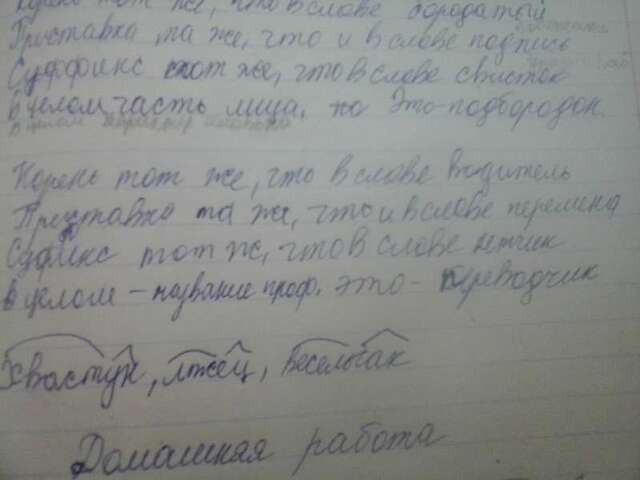 Корень тот же, что в слове бородатый
Приставка, та же, что и в слове подпись
Суффикс тот же, что в слове свисток
в целом часть лица. Это - подбородок.
Корень тот же, что в слове водитель
Приставка та же, что и в слове перемена
Суфикс тот же, что в слове летчик
в целом - название проф. это - переводчик
хвастун, лжец, весельчак
Домашняя работа